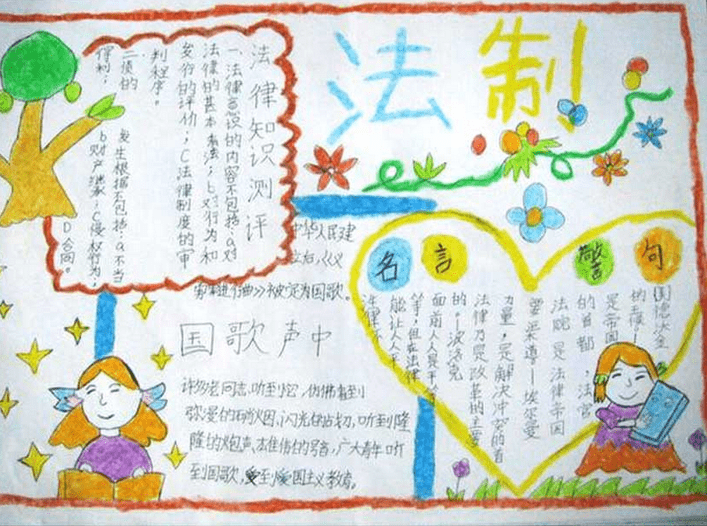 法制
法律知识测评
一、法律意识的内容不包括:a对
法律的基本看法;b对行为和
发行的评价;C法律制度的审
判程序。
二债的发生根据不包括:a不当
得利;b财产继承;C侵权行为;
D合同。
中华人民建
立后,《义
勇军进行曲》被定为国歌。
国歌声中
许多老同志,听到它,仿拂看到
弥漫的硝烟,闪光的战刀,听到隆
隆的炮声,雄伟的号音,广大青年听
到国歌,受到爱国主义教育。
名言警句
法院是法律帝国
的首都,法官
是帝国
的王侯
要柔道——埃尔曼
力量,是解决冲突的首
法律乃是改革的主要
的——波洛克
面前人人是平等
等,但在法律
能让人人平
法律不